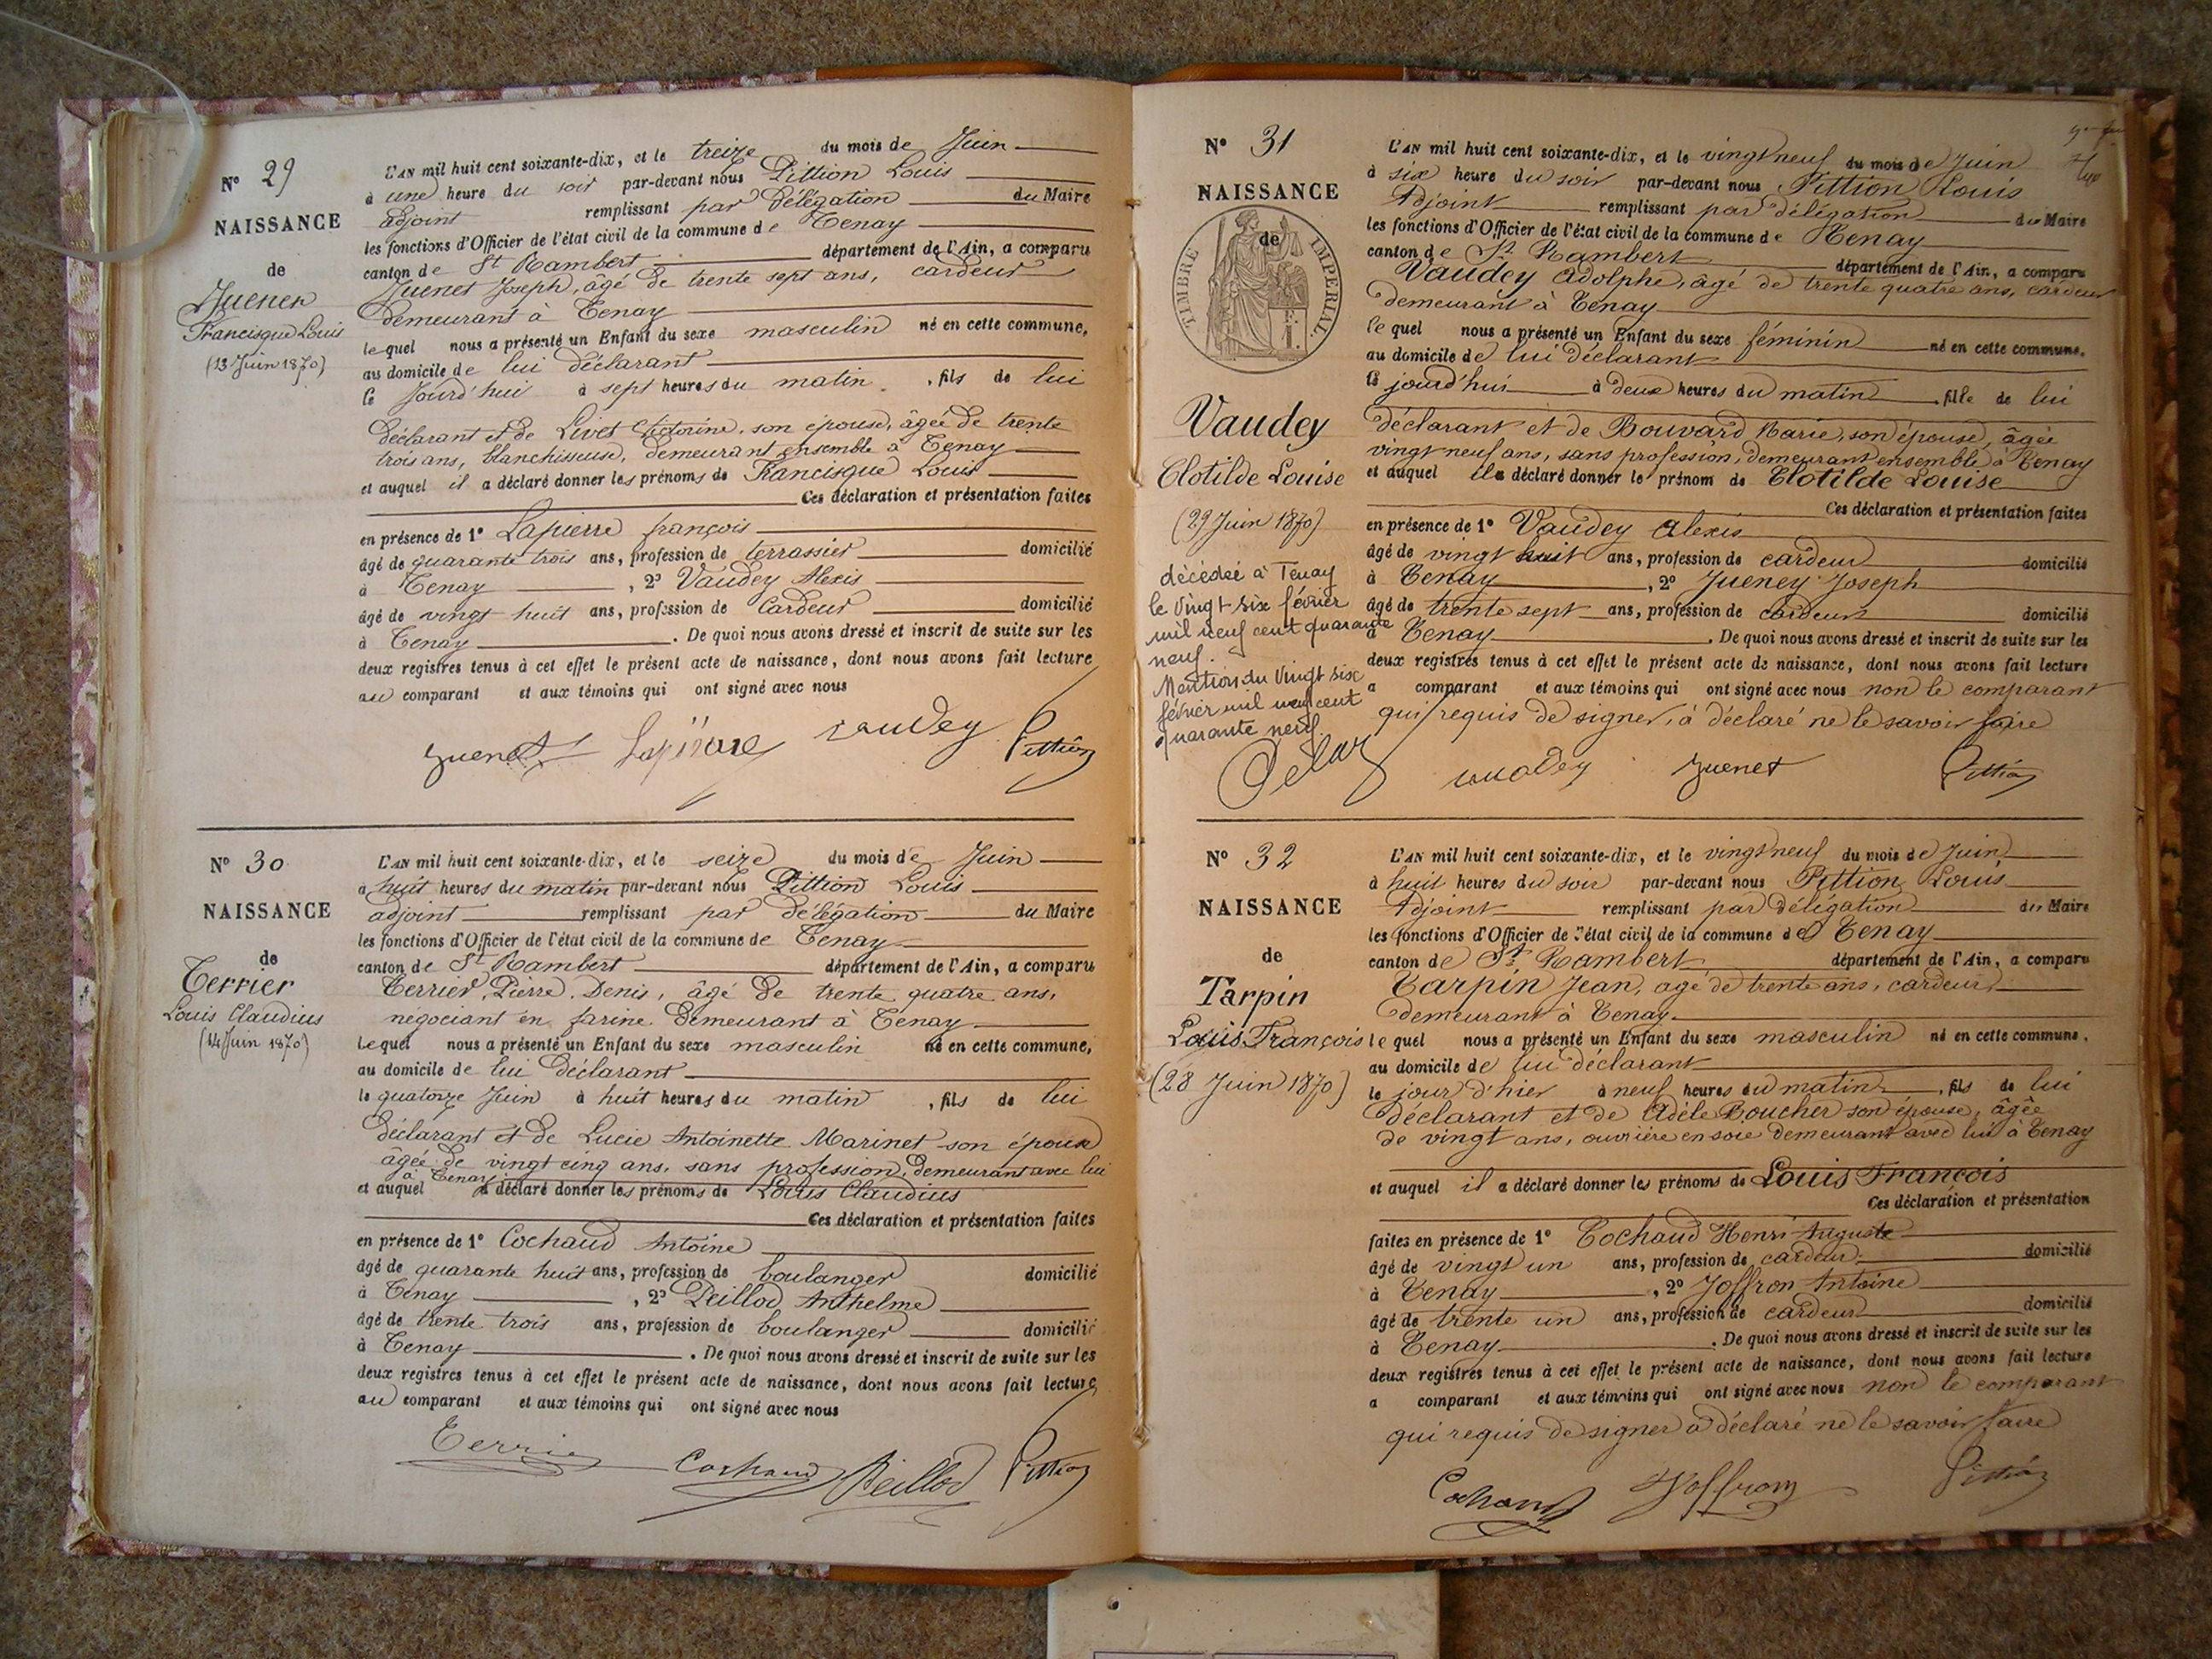 N° 29
NAISSANCE
de
Juenen
Francisque Louis
(13 Juin 1870)
L'AN mil huit cent soixante-dix, et le treize du mois de Juin
à une heure du soir par-devant nous Pittion Louis
adjoint remplissant par délégation du Maire
les fonctions d'Officier de l'état civil de la commune de Tenay
canton de St Rambert département de l'Ain, a comparu
Juenet Joseph, âgé de trente sept ans, cardeur
demeurant à Tenay
lequel nous a présenté un Enfant du sexe masculin né en cette commune,
au domicile de lui déclarant
le Jourd'hui à sept heures du matin, fils de lui
déclarant et de Livet Victorine, son épouse, âgée de trente
trois ans, blanchisseuse, demeurant ensemble à Tenay
et auquel il a déclaré donner les prénoms de Francisque Louis
Ces déclaration et présentation faites
en présence de 1° Lapierre françois
âgé de quarante trois ans, profession de terrassier domicilié
à Tenay, 2° Vaudey Alexis
âgé de vingt huit ans, profession de Cardeur domicilié
à Tenay. De quoi nous avons dressé et inscrit de suite sur les
deux registres tenus à cet effet le présent acte de naissance, dont nous avons fait lecture
au comparant et aux témoins qui ont signé avec nous
Juenet Lapierre Vaudey Pittion
N° 30
NAISSANCE
de
Terrier
Louis Claudius
(14 Juin 1870)
L'AN mil huit cent soixante-dix, et le seize du mois de Juin
à huit heures du matin par-devant nous Pittion Louis
adjoint remplissant par délégation du Maire
les fonctions d'Officier de l'état civil de la commune de Tenay
canton de St Rambert département de l'Ain, a comparu
Terrier, Pierre, Denis, âgé de trente quatre ans,
négociant en farine demeurant à Tenay
lequel nous a présenté un Enfant du sexe masculin né en cette commune,
au domicile de lui déclarant
le quatorze Juin à huit heures du matin, fils de lui
déclarant et de Lucie Antoinette Marinet son épouse
âgée de vingt cinq ans, sans profession, demeurant avec lui
à Tenay
et auquel il a déclaré donner les prénoms de Louis Claudius
Ces déclaration et présentation faites
en présence de 1° Cochaud Antoine
âgé de quarante huit ans, profession de boulanger domicilié
à Tenay, 2° Peillod Anthelme
âgé de trente trois ans, profession de boulanger domicilié
à Tenay. De quoi nous avons dressé et inscrit de suite sur les
deux registres tenus à cet effet le présent acte de naissance, dont nous avons fait lecture
au comparant et aux témoins qui ont signé avec nous
Terrier Cochaud Peillod Pittion
N° 31
NAISSANCE
de
TIMBRE IMPERIAL
Vaudey
Clotilde Louise
(29 Juin 1870)
décédée à Tenay
le Vingt six février
mil neuf cent quarante
neuf.
Mention du Vingt six
février mil neuf cent
quarante neuf
L'AN mil huit cent soixante-dix, et le vingt neuf du mois de Juin
à six heure du soir par-devant nous Pittion Louis
Adjoint remplissant par délégation du Maire
les fonctions d'Officier de l'état civil de la commune de Tenay
canton de St Rambert département de l'Ain, a comparu
Vaudey Adolphe, âgé de trente quatre ans, cardeur
demeurant à Tenay
lequel nous a présenté un Enfant du sexe féminin né en cette commune,
au domicile de lui déclarant
le jourd'hui à deux heures du matin, fille de lui
déclarant et de Bouvard Marie, son épouse, âgée
vingt neuf ans, sans profession, demeurant ensemble à Tenay
et auquel il a déclaré donner le prénom de Clotilde Louise
Ces déclaration et présentation faites
en présence de 1° Vaudey Alexis
âgé de vingt huit ans, profession de cardeur domicilié
à Tenay, 2° Jueney Joseph
âgé de trente sept ans, profession de cardeur domicilié
à Tenay. De quoi nous avons dressé et inscrit de suite sur les
deux registres tenus à cet effet le présent acte de naissance, dont nous avons fait lecture
a comparant et aux témoins qui ont signé avec nous non le comparant
qui requis de signer, à déclaré ne le savoir faire
Vaudey Juenet Pittion
N° 32
NAISSANCE
de
Tarpin
Louis François
(28 Juin 1870)
L'AN mil huit cent soixante-dix, et le vingt neuf du mois de Juin
à huit heures du soir par-devant nous Pittion Louis
Adjoint remplissant par délégation du Maire
les fonctions d'Officier de l'état civil de la commune de Tenay
canton de St Rambert département de l'Ain, a comparu
Tarpin Jean, agé de trente ans, cardeur
demeurant à Tenay
lequel nous a présenté un Enfant du sexe masculin né en cette commune,
au domicile de lui déclarant
le jour d'hier à neuf heures du matin, fils de lui
déclarant et de Adèle Boucher son épouse, âgée
de vingt ans, ouvrière en soie demeurant avec lui à Tenay
et auquel il a déclaré donner les prénoms de Louis François
Ces déclaration et présentation
faites en présence de 1° Cochaud Henri Auguste
âgé de vingt un ans, profession de cardeur domicilié
à Tenay, 2° Joffron Antoine
âgé de trente un ans, profession de cardeur domicilié
à Tenay. De quoi nous avons dressé et inscrit de suite sur les
deux registres tenus à cet effet le présent acte de naissance, dont nous avons fait lecture
a comparant et aux témoins qui ont signé avec nous non le comparant
qui requis de signer a déclaré ne le savoir faire
Cochaud Joffron Pittion